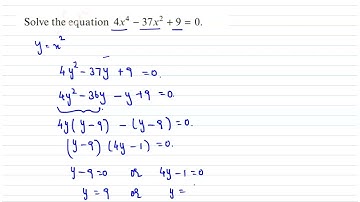 Solve the equation 4x⁴ − 37x² + 9 = 0.
y = x²
4y² − 37y + 9 = 0.
4y² − 36y − y + 9 = 0.
4y(y − 9) − (y − 9) = 0.
(y − 9) (4y − 1) = 0.
y − 9 = 0 or 4y − 1 = 0
y = 9 or y =